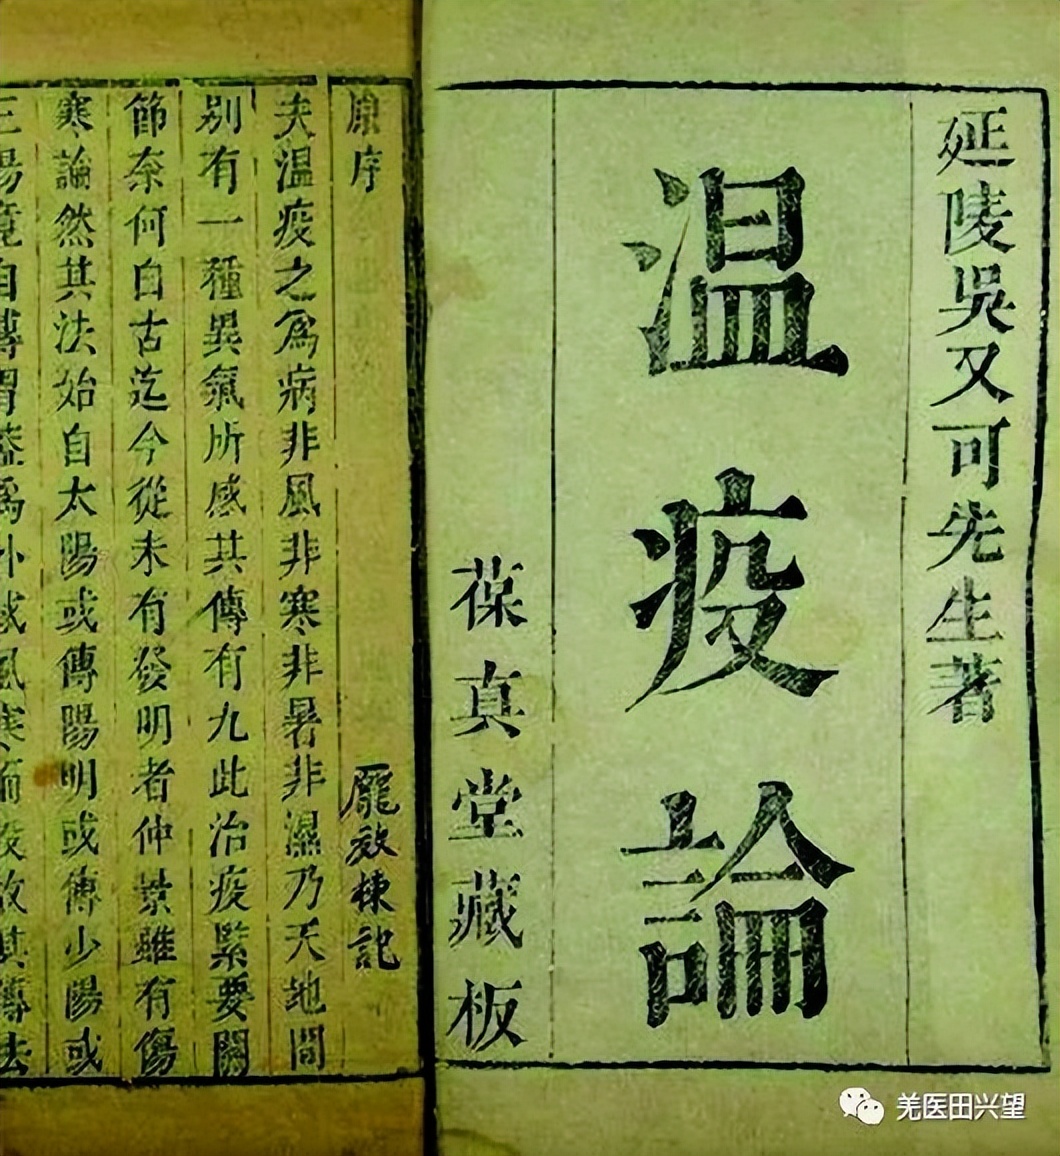 延陵吳又可先生著
温疫論
葆真堂藏板
原序
龐效棟記
夫温疫之爲病非風非寒非暑非濕乃天地間
别有一種異氣所感其傳有九此治疫緊要關
節奈何自古迄今從未有發明者仲景雖有傷
寒論然其法始自太陽或傳陽明或傳少陽或
三陽竟自傳胃葢爲外感風寒而設故其傳法
羌医田兴望